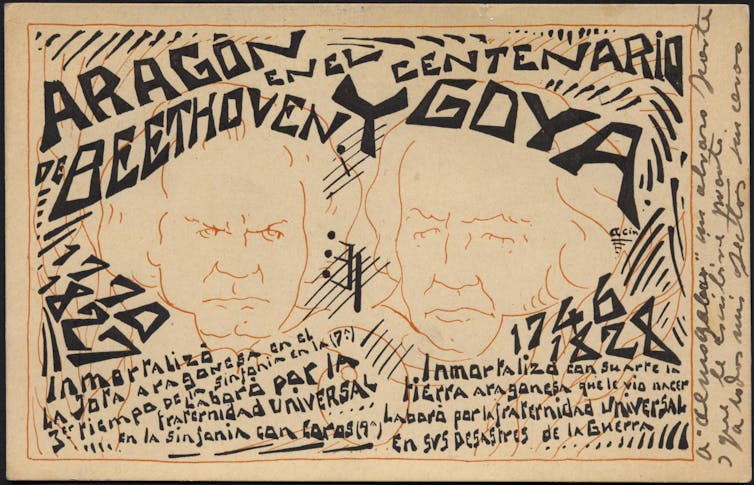 ARAGÓN EN EL CENTENARIO
DE BEETHOVEN Y GOYA
1770
1827
1746
1828
Acín
Inmortalizó
La Jota aragonesa en el
3er tiempo de la sinfonía en la (7ª)
Laboró por la
fraternidad UNIVERSAL
en la sinfonía con coros (9ª)
Inmortalizó con su arte la
tierra aragonesa que le vio nacer
Laboró por la fraternidad UNIVERSAL
en sus DESASTRES de la GUERRA
a "Almogabar" un abrazo
y que le escribiré pronto.
a todos mis afectos sinceros